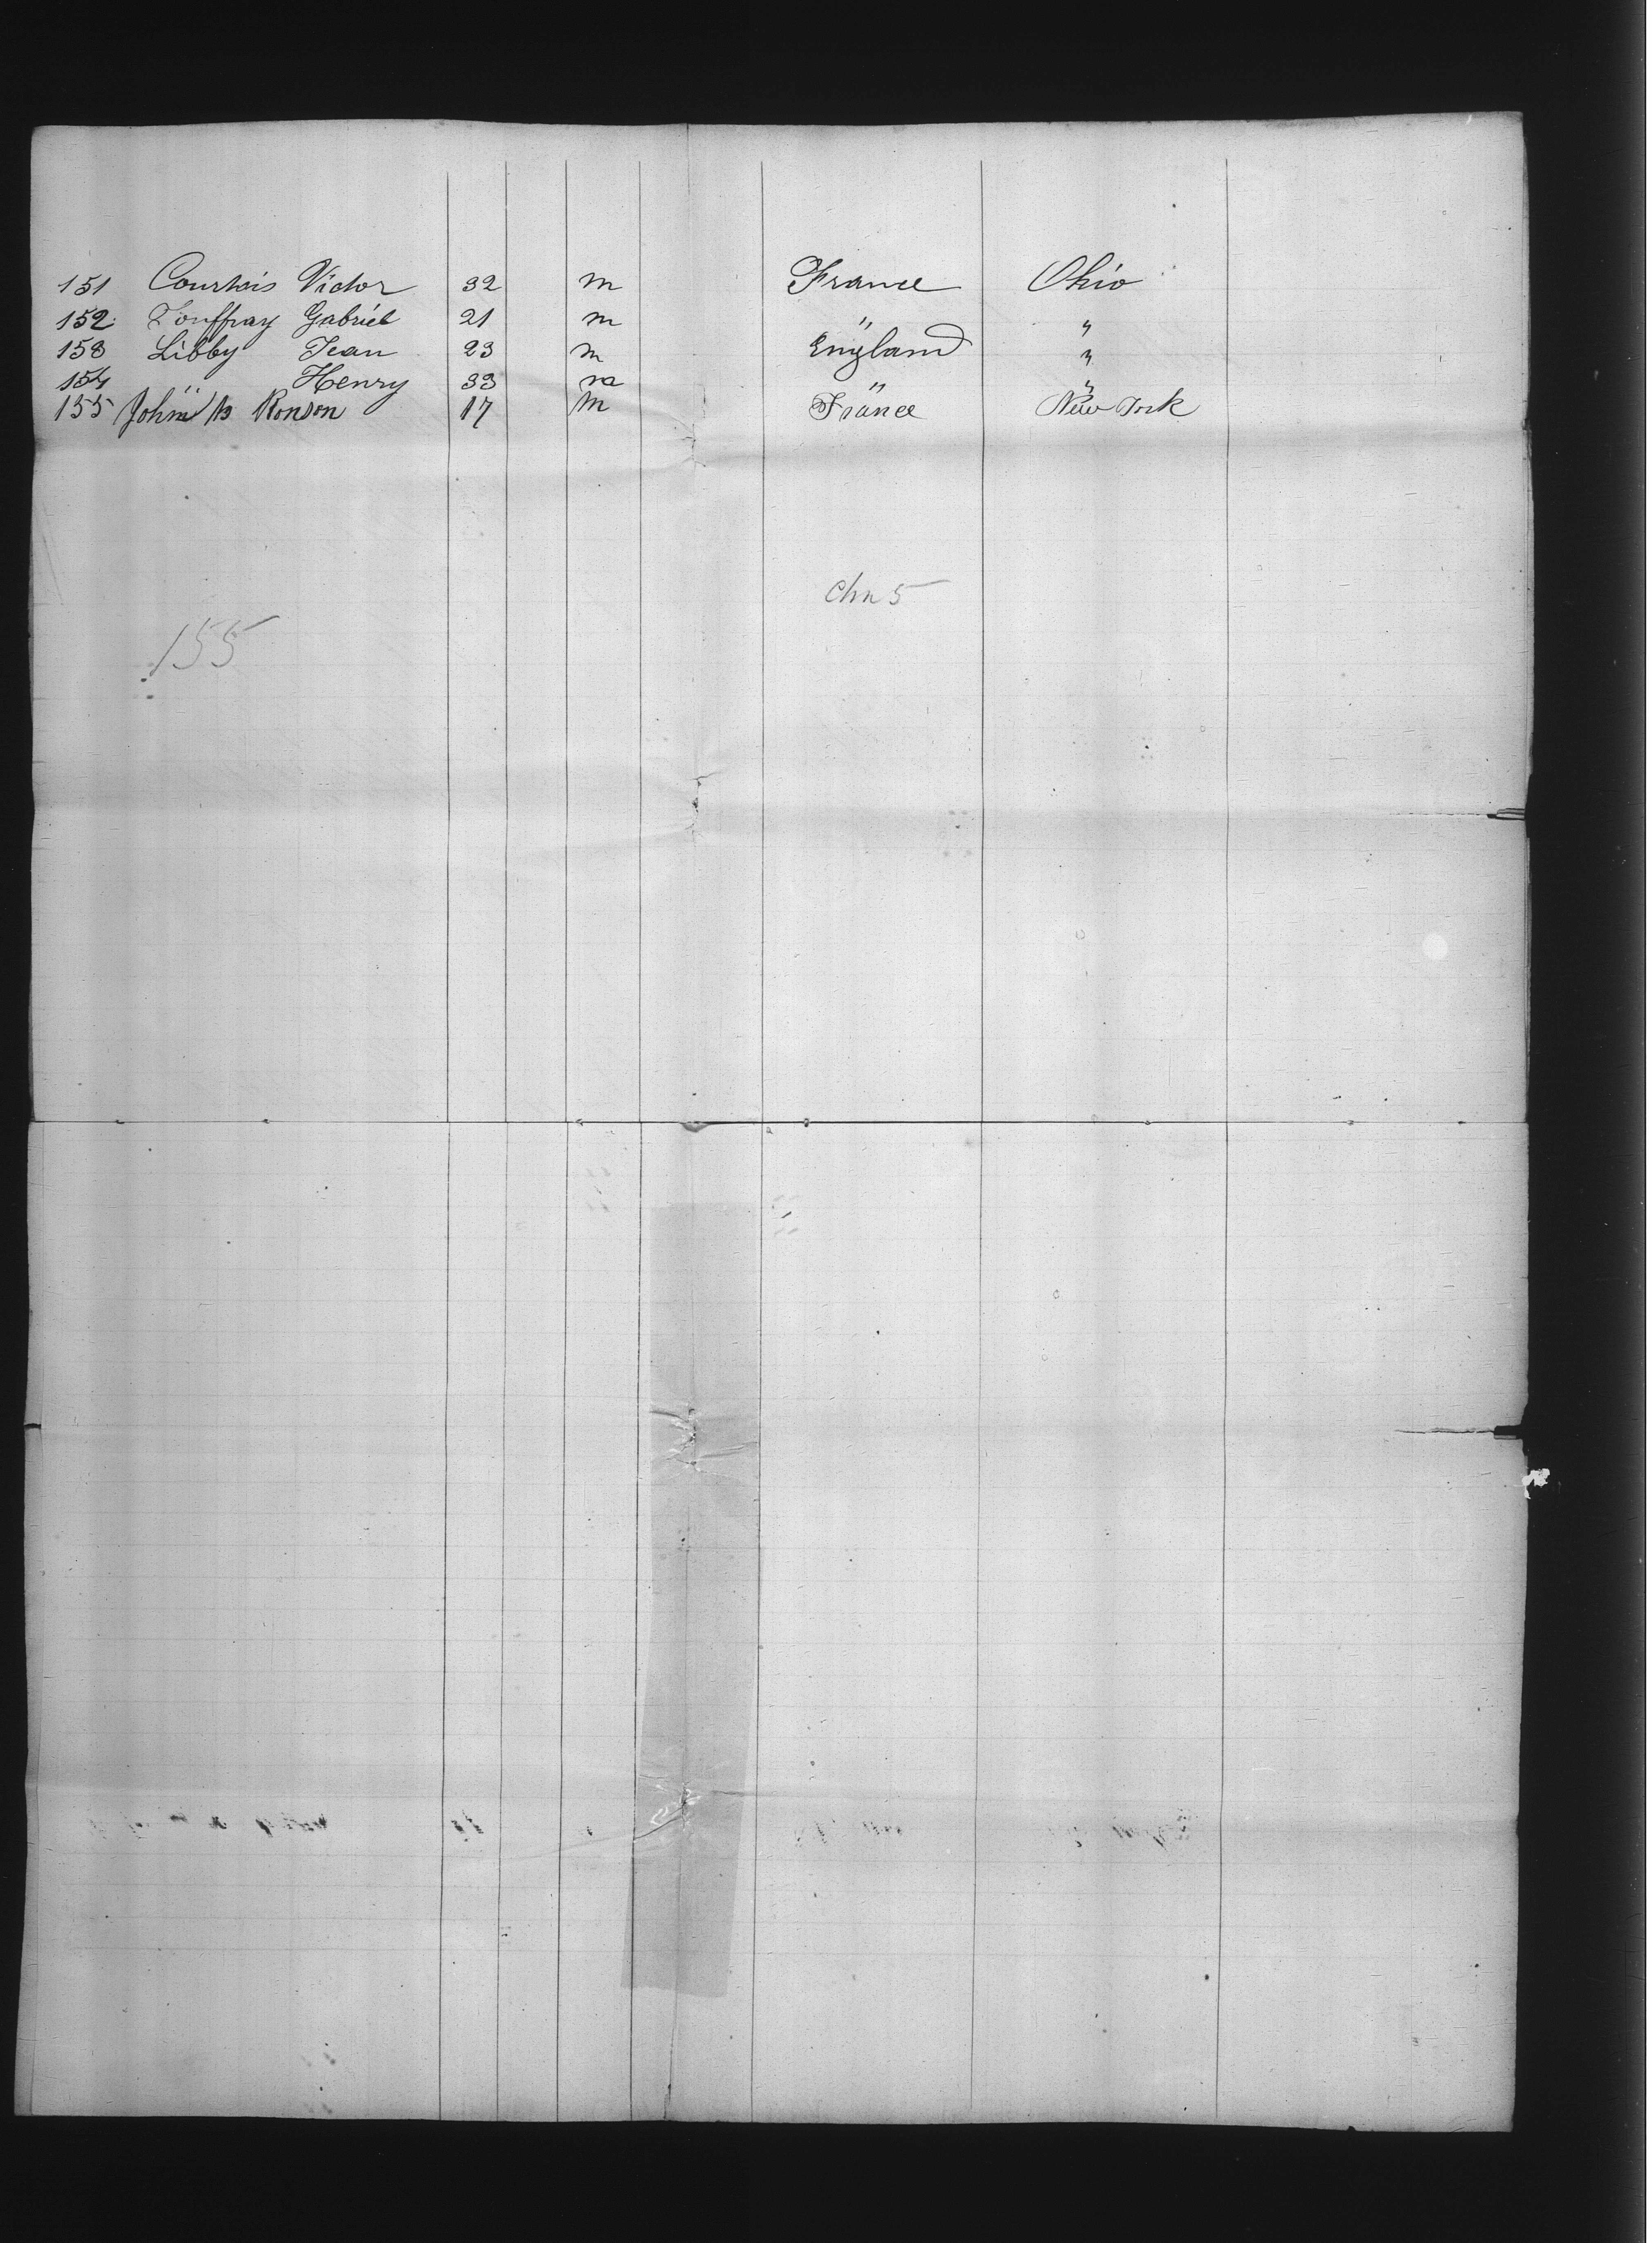 151 Courtois Victor 32 m France Ohio
152 Jouffray Gabriel 21 m " "
153 Libby Jean 23 m England "
154 " Henry 33 m " "
155 John Ronson 17 m France New York
chn 5
155